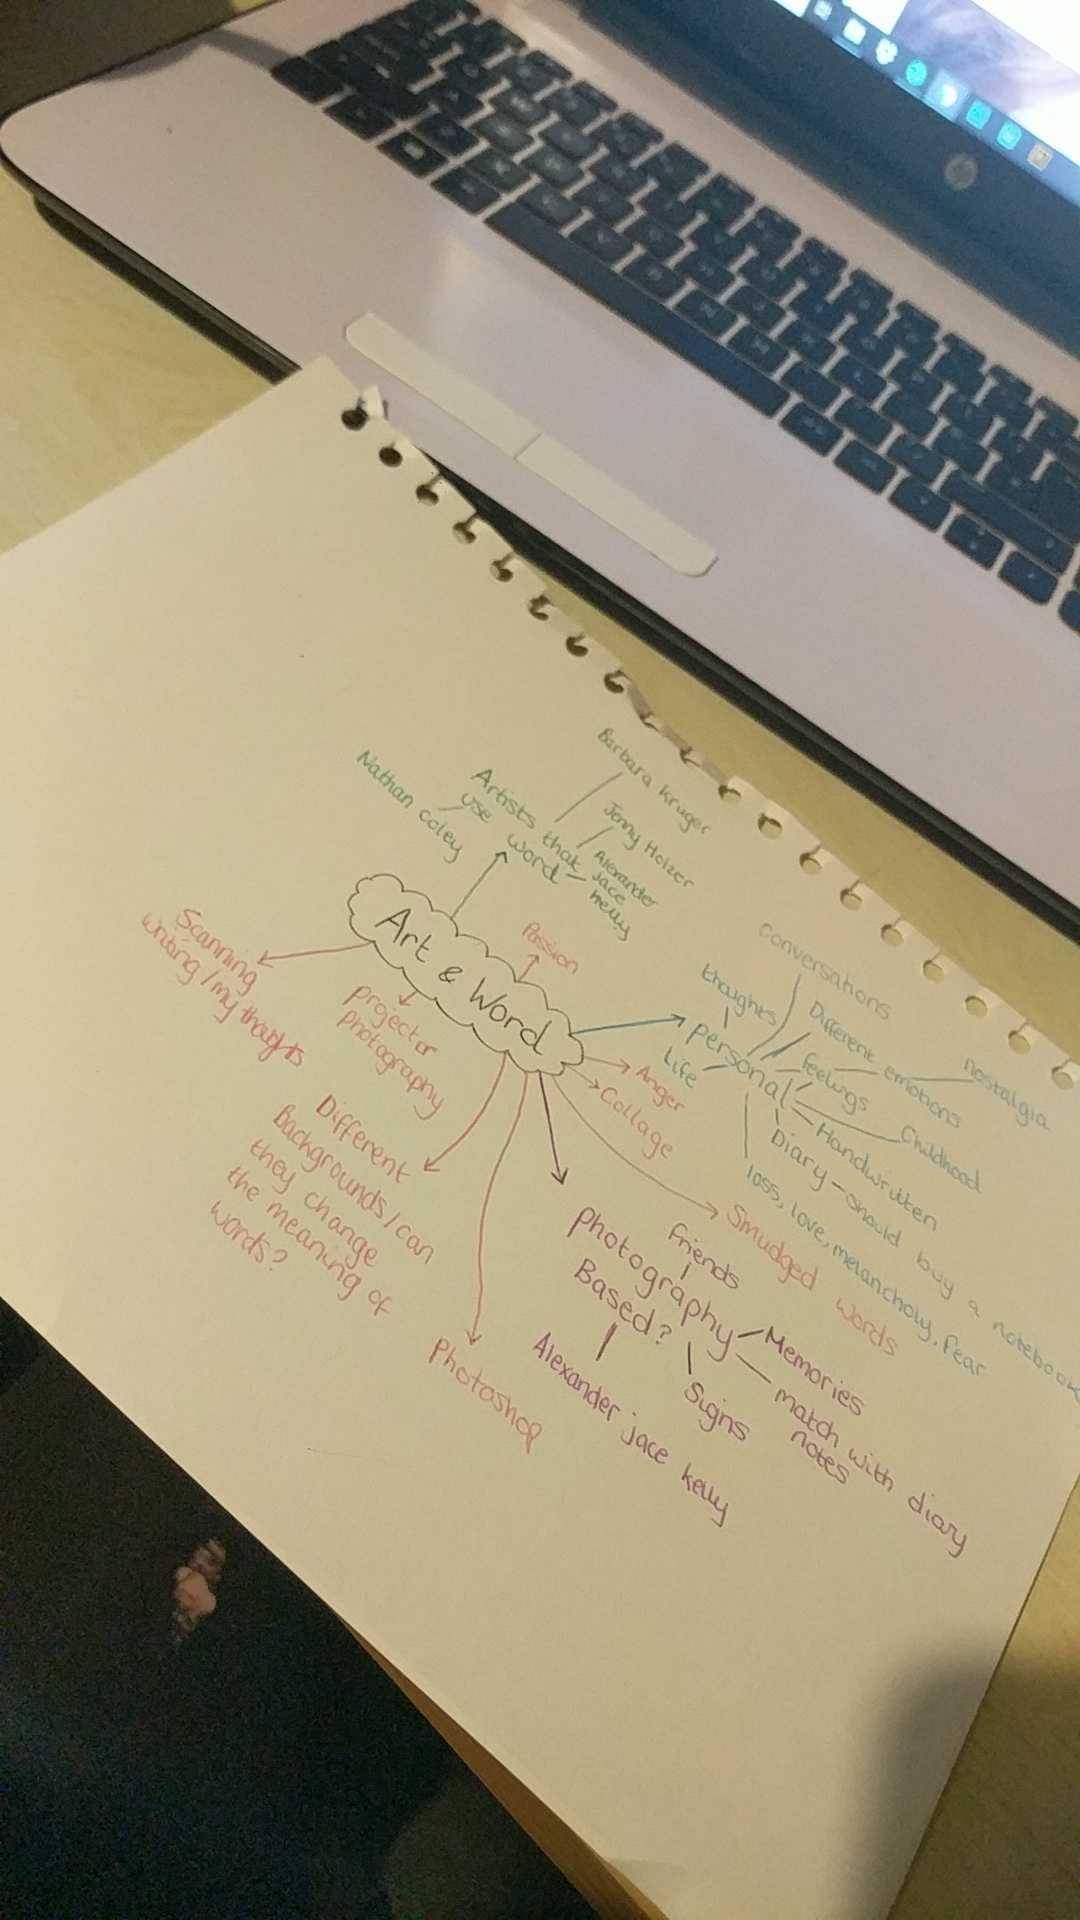 Art & Word
Artists that
use word
Nathan Coley
Barbara Kruger
Jenny Holzer
Alexander
jace
kelly
Passion
Scanning
writing/my thoughts
projector
photography
Different
Backgrounds/can
they change
the meaning of
words?
Photoshop
personal
thoughts
Life
Conversations
Different emotions
nostalgia
feelings
Childhood
Handwritten
Diary - should buy a notebook
loss, love, melancholy, fear
Anger
Collage
Smudged words
photography
Based?
friends
Memories
match with diary
notes
Signs
Alexander jace kelly
hp